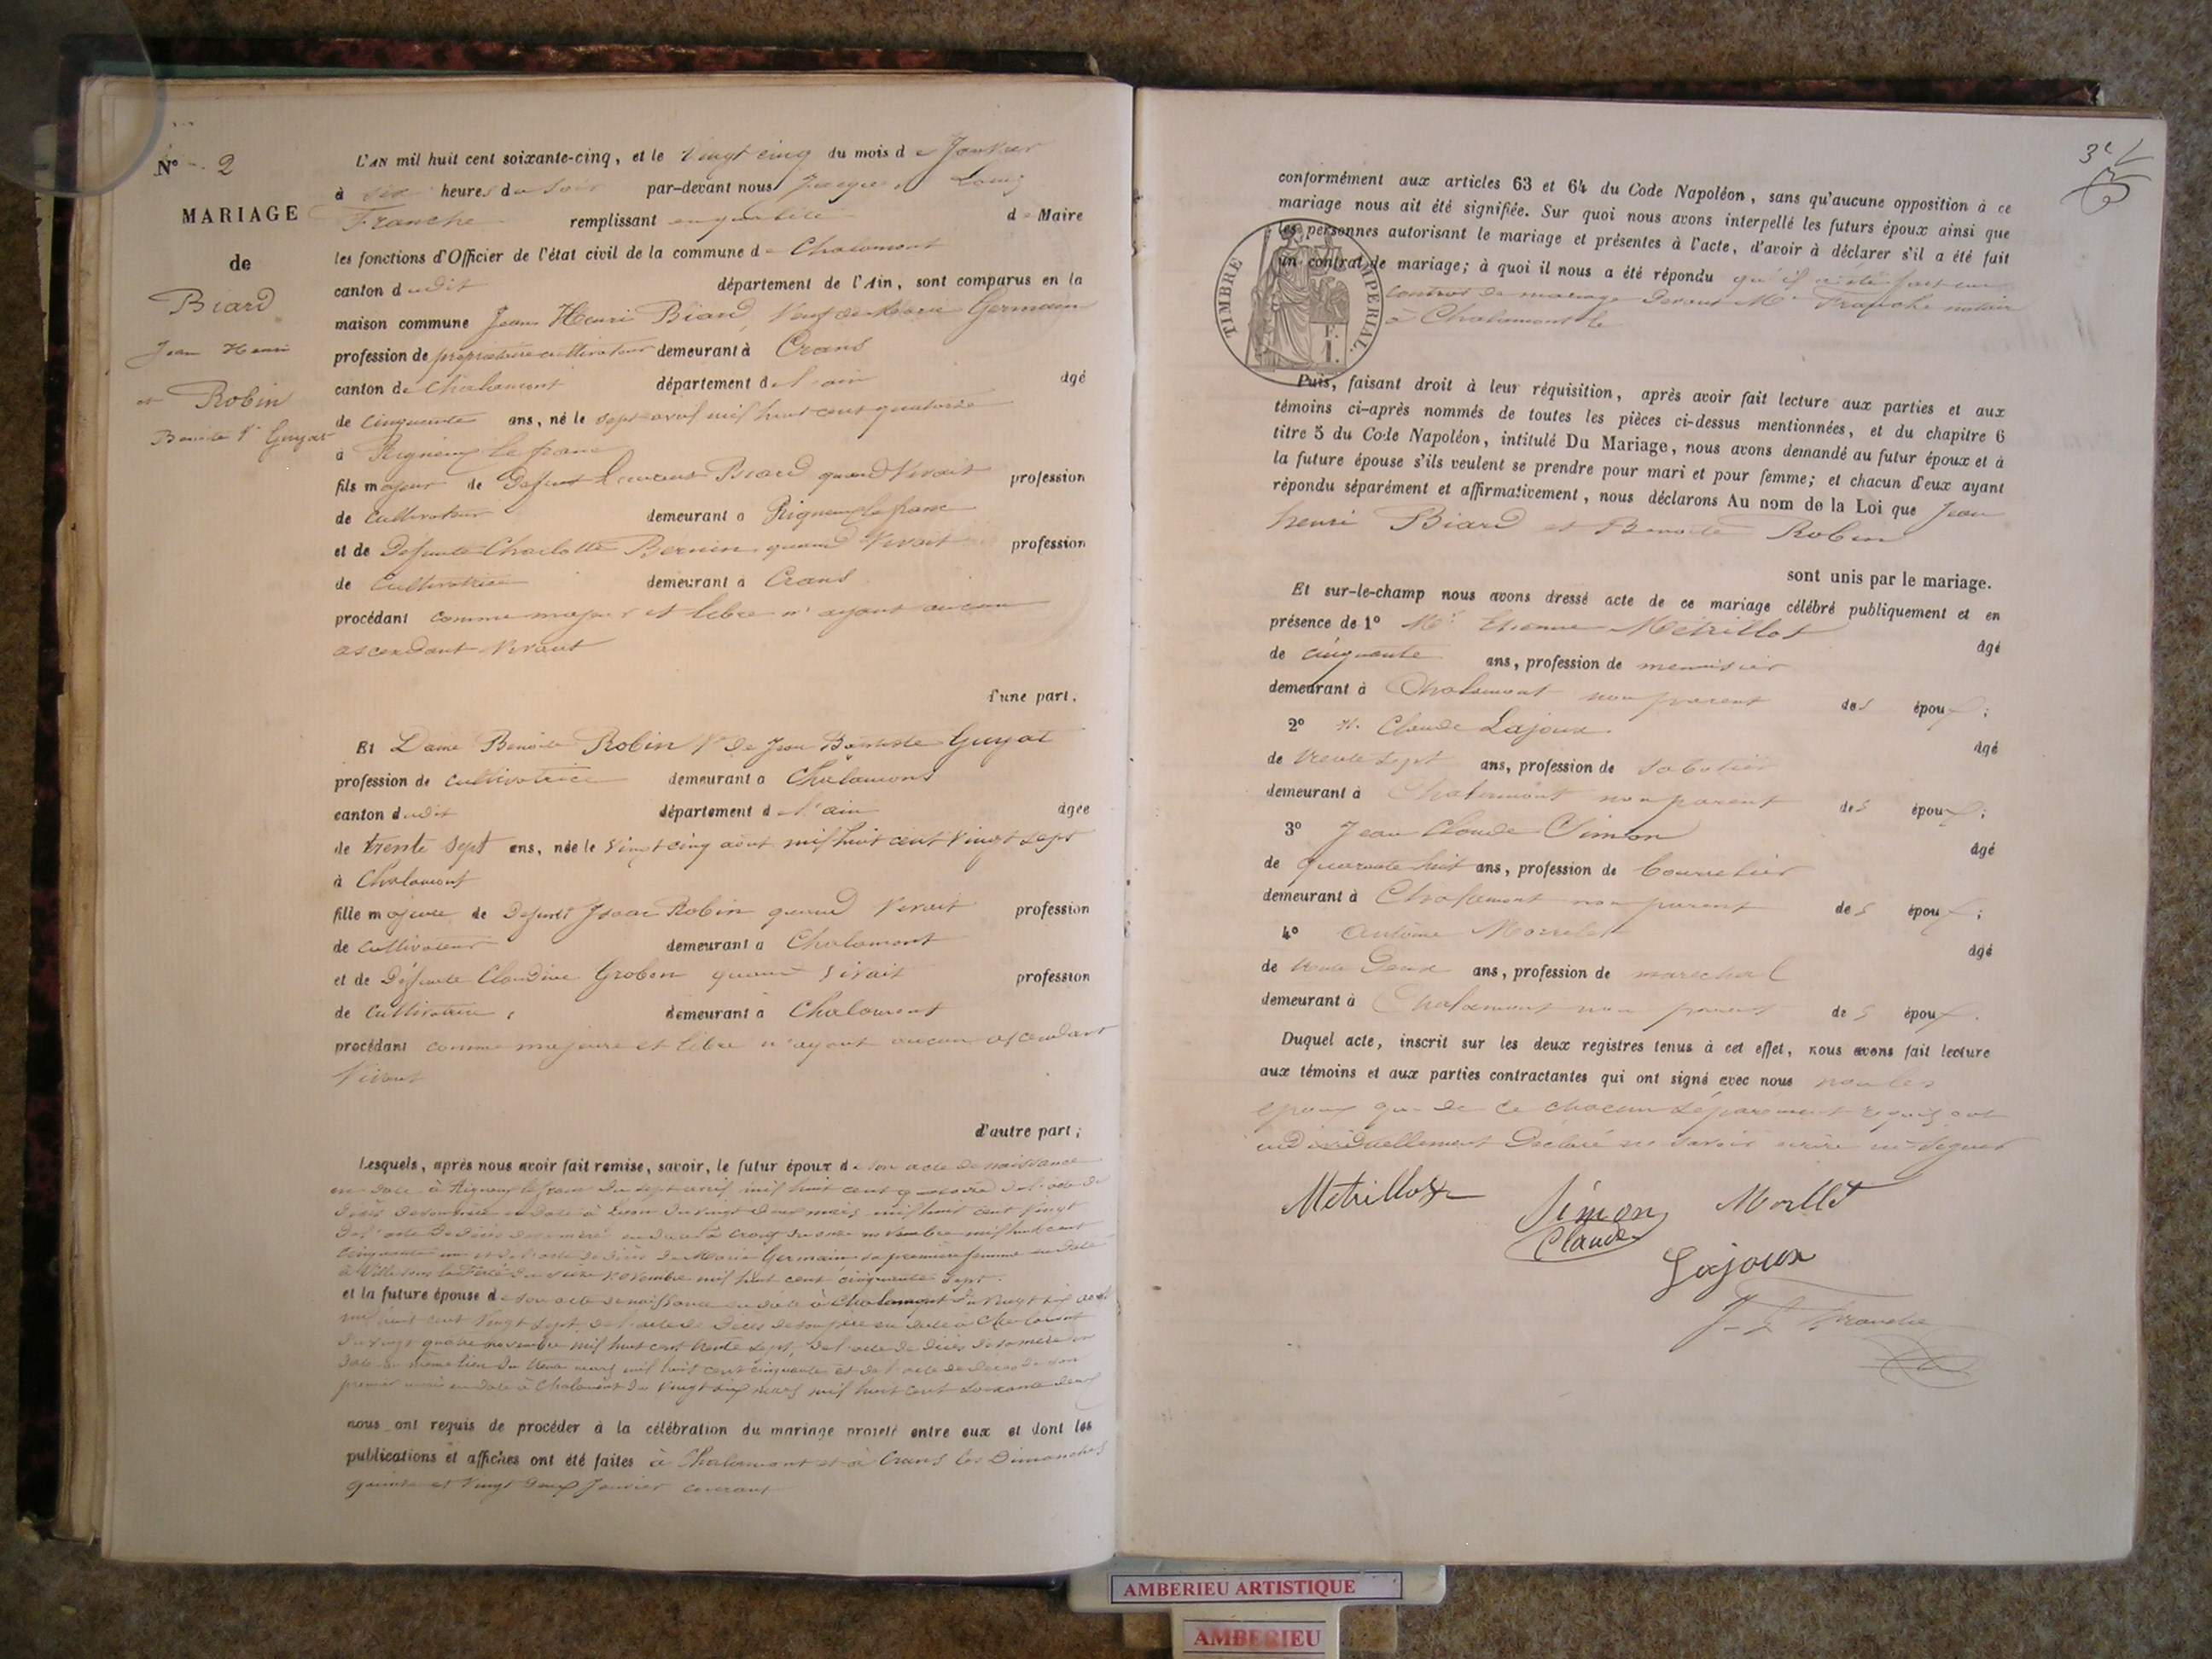 N° 2
MARIAGE
de
Biard
Jean Henri
et Robin
Benoite Ve Guyot
L'AN mil huit cent soixante-cinq, et le Vingt cinq du mois de Janvier
à six heures du Soir par-devant nous Jacques Louis
Franche remplissant en qualité de Maire
les fonctions d'Officier de l'état civil de la commune de Chalamont
canton dudit département de l'Ain, sont comparus en la
maison commune Jean Henri Biard, Veuf de Marie Germain
profession de propriétaire cultivateur demeurant à Crans
canton de Chalamont département de l'ain âgé
de cinquante ans, né le sept avril mil huit cent quatorze
à Rigneux le franc
fils majeur de Defunt Biard quand Vivait profession
de Cultivateur demeurant à Rigneux le franc
et de Defunte Charlotte Bernin quand Vivait profession
de Cultivatrice demeurant à Crans
procédant comme majeur et libre n'ayant aucun
ascendant Vivant
d'une part.
Et Dame Benoite Robin Ve de Jean Baptiste Guyot
profession de cultivatrice demeurant à Chalamont
canton dudit département de l'ain âgée
de trente sept ans, née le Vingt cinq août mil huit cent Vingt sept
à Chalamont
fille majeure de Defunt Isaac Robin quand Vivait profession
de Cultivateur demeurant à Chalamont
et de Défunte Claudine Grobon quand Vivait profession
de Cultivatrice, demeurant à Chalamont
procédant comme majeure et libre n'ayant aucun ascendant
Vivant
d'autre part;
Lesquels, après nous avoir fait remise, savoir, le futur époux de son acte de naissance
en date à Rigneux le franc du sept avril mil huit cent quatorze de l'acte de
décès de son père en date à du Vingt deux mars mil huit cent Vingt
de l'acte de décès de sa mère en date à Crans du onze novembre mil huit cent
cinquante un et de l'acte de décès de Marie Germain sa première femme en date
à Ville sous la Ferté du seize novembre mil huit cent cinquante sept.
et la future épouse de son acte de naissance en date à Chalamont du Vingt six août
mil huit cent Vingt sept, de l'acte de décès de son père en date à Chalamont
du Vingt quatre novembre mil huit cent trente sept, de l'acte de décès de sa mère en
date au même lieu du mars mil huit cent cinquante et de l'acte de décès de son
premier mari en date à Chalamont du Vingt six mars mil huit cent soixante deux
nous ont requis de procéder à la célébration du mariage projeté entre eux et dont les
publications et affiches ont été faites à Chalamont et à Crans les Dimanches
quinze et Vingt deux Janvier courant
conformément aux articles 63 et 64 du Code Napoléon, sans qu'aucune opposition à ce
mariage nous ait été signifiée. Sur quoi nous avons interpellé les futurs époux ainsi que
les personnes autorisant le mariage et présentes à l'acte, d'avoir à déclarer s'il a été fait
un contrat de mariage; à quoi il nous a été répondu qu'il a été fait un
Contrat de mariage devant Me Franche notaire
à Chalamont le
TIMBRE IMPERIAL
Puis, faisant droit à leur réquisition, après avoir fait lecture aux parties et aux
témoins ci-après nommés de toutes les pièces ci-dessus mentionnées, et du chapitre 6
titre 5 du Code Napoléon, intitulé Du Mariage, nous avons demandé au futur époux et à
la future épouse s'ils veulent se prendre pour mari et pour femme; et chacun d'eux ayant
répondu séparément et affirmativement, nous déclarons Au nom de la Loi que Jean
henri Biard et Benoite Robin
sont unis par le mariage.
Et sur-le-champ nous avons dressé acte de ce mariage célébré publiquement et en
présence de 1° Mr Etienne Métrillot âgé
de cinquante ans, profession de menuisier
demeurant à Chalamont non parent des époux;
2° Claude Lajoux âgé
de trente sept ans, profession de sabotier
demeurant à Chalamont non parent des époux;
3° Jean Claude Simon âgé
de quarante huit ans, profession de bourrelier
demeurant à Chalamont non parent des époux;
4° Antoine âgé
de trente Deux ans, profession de marechal
demeurant à Chalamont non parent des époux.
Duquel acte, inscrit sur les deux registres tenus à cet effet, nous avons fait lecture
aux témoins et aux parties contractantes qui ont signé avec nous non les
époux qui de ce chacun séparement requis ont
individuellement Déclaré ne savoir écrire ni signer
Metrillot
Simon
Claude
Morllet
Lajoux
J L Franche
AMBERIEU ARTISTIQUE
AMBERIEU